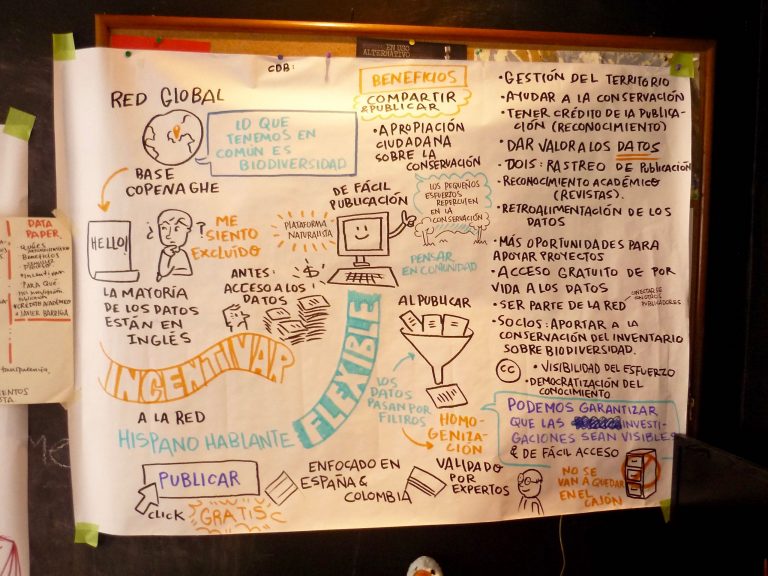 EN USO
ALTERNATIVO
CDB:
RED GLOBAL
LO QUE
TENEMOS EN
COMÚN ES
BIODIVERSIDAD
BASE
COPENAGHE
HELLO!
¿ ?
ME
SIENTO
EXCLUÍDO
LA MAYORÍA
DE LOS DATOS
ESTÁN EN
INGLÉS
ANTES:
ACCESO A LOS
DATOS
$
INCENTIVAR
A LA RED
HISPANO HABLANTE
PUBLICAR
CLICK
GRATIS
BENEFICIOS
COMPARTIR
& PUBLICAR
• APROPIACIÓN
CIUDADANA
SOBRE LA
CONSERVACIÓN
DE FÁCIL
PUBLICACIÓN
PLATAFORMA
NATURALISTA
LOS PEQUEÑOS
ESFUERZOS
REPERCUTEN
EN LA
CONSERVACIÓN
PENSAR
EN COMUNIDAD
FLEXIBLE
AL PUBLICAR
LOS
DATOS
PASAN POR
FILTROS
HOMO-
GENIZA-
CIÓN
ENFOCADO EN
ESPAÑA &
COLOMBIA
VALIDADO
POR
EXPERTOS
• GESTIÓN DEL TERRITORIO
• AYUDAR A LA CONSERVACIÓN
• TENER CRÉDITO DE LA PUBLICA-
CIÓN (RECONOCIMIENTO)
• DAR VALOR A LOS DATOS
• DOIS: RASTREO DE PUBLICACIÓN
• RECONOCIMIENTO ACADÉMICO
(REVISTAS).
• RETROALIMENTACIÓN DE LOS
DATOS
• MÁS OPORTUNIDADES PARA
APOYAR PROYECTOS
• ACCESO GRATUITO DE POR
VIDA A LOS DATOS
• SER PARTE DE LA RED
PUBLICADORES
• SOCIOS: APORTAR A LA
CONSERVACIÓN DEL INVENTARIO
SOBRE BIODIVERSIDAD.
CC
• VISIBILIDAD DEL ESFUERZO
• DEMOCRATIZACIÓN DEL
CONOCIMIENTO
PODEMOS GARANTIZAR
QUE LAS INVESTI-
GACIONES SEAN VISIBLES
& DE FÁCIL ACCESO
NO SE
VAN A QUEDAR
EN EL
CAJÓN
DATA
PAPER
BENEFICIOS
INCENTIVAR
PARA QUÉ
CRÉDITO ACADÉMICO
JAVIER BARRIGA
transparencia,